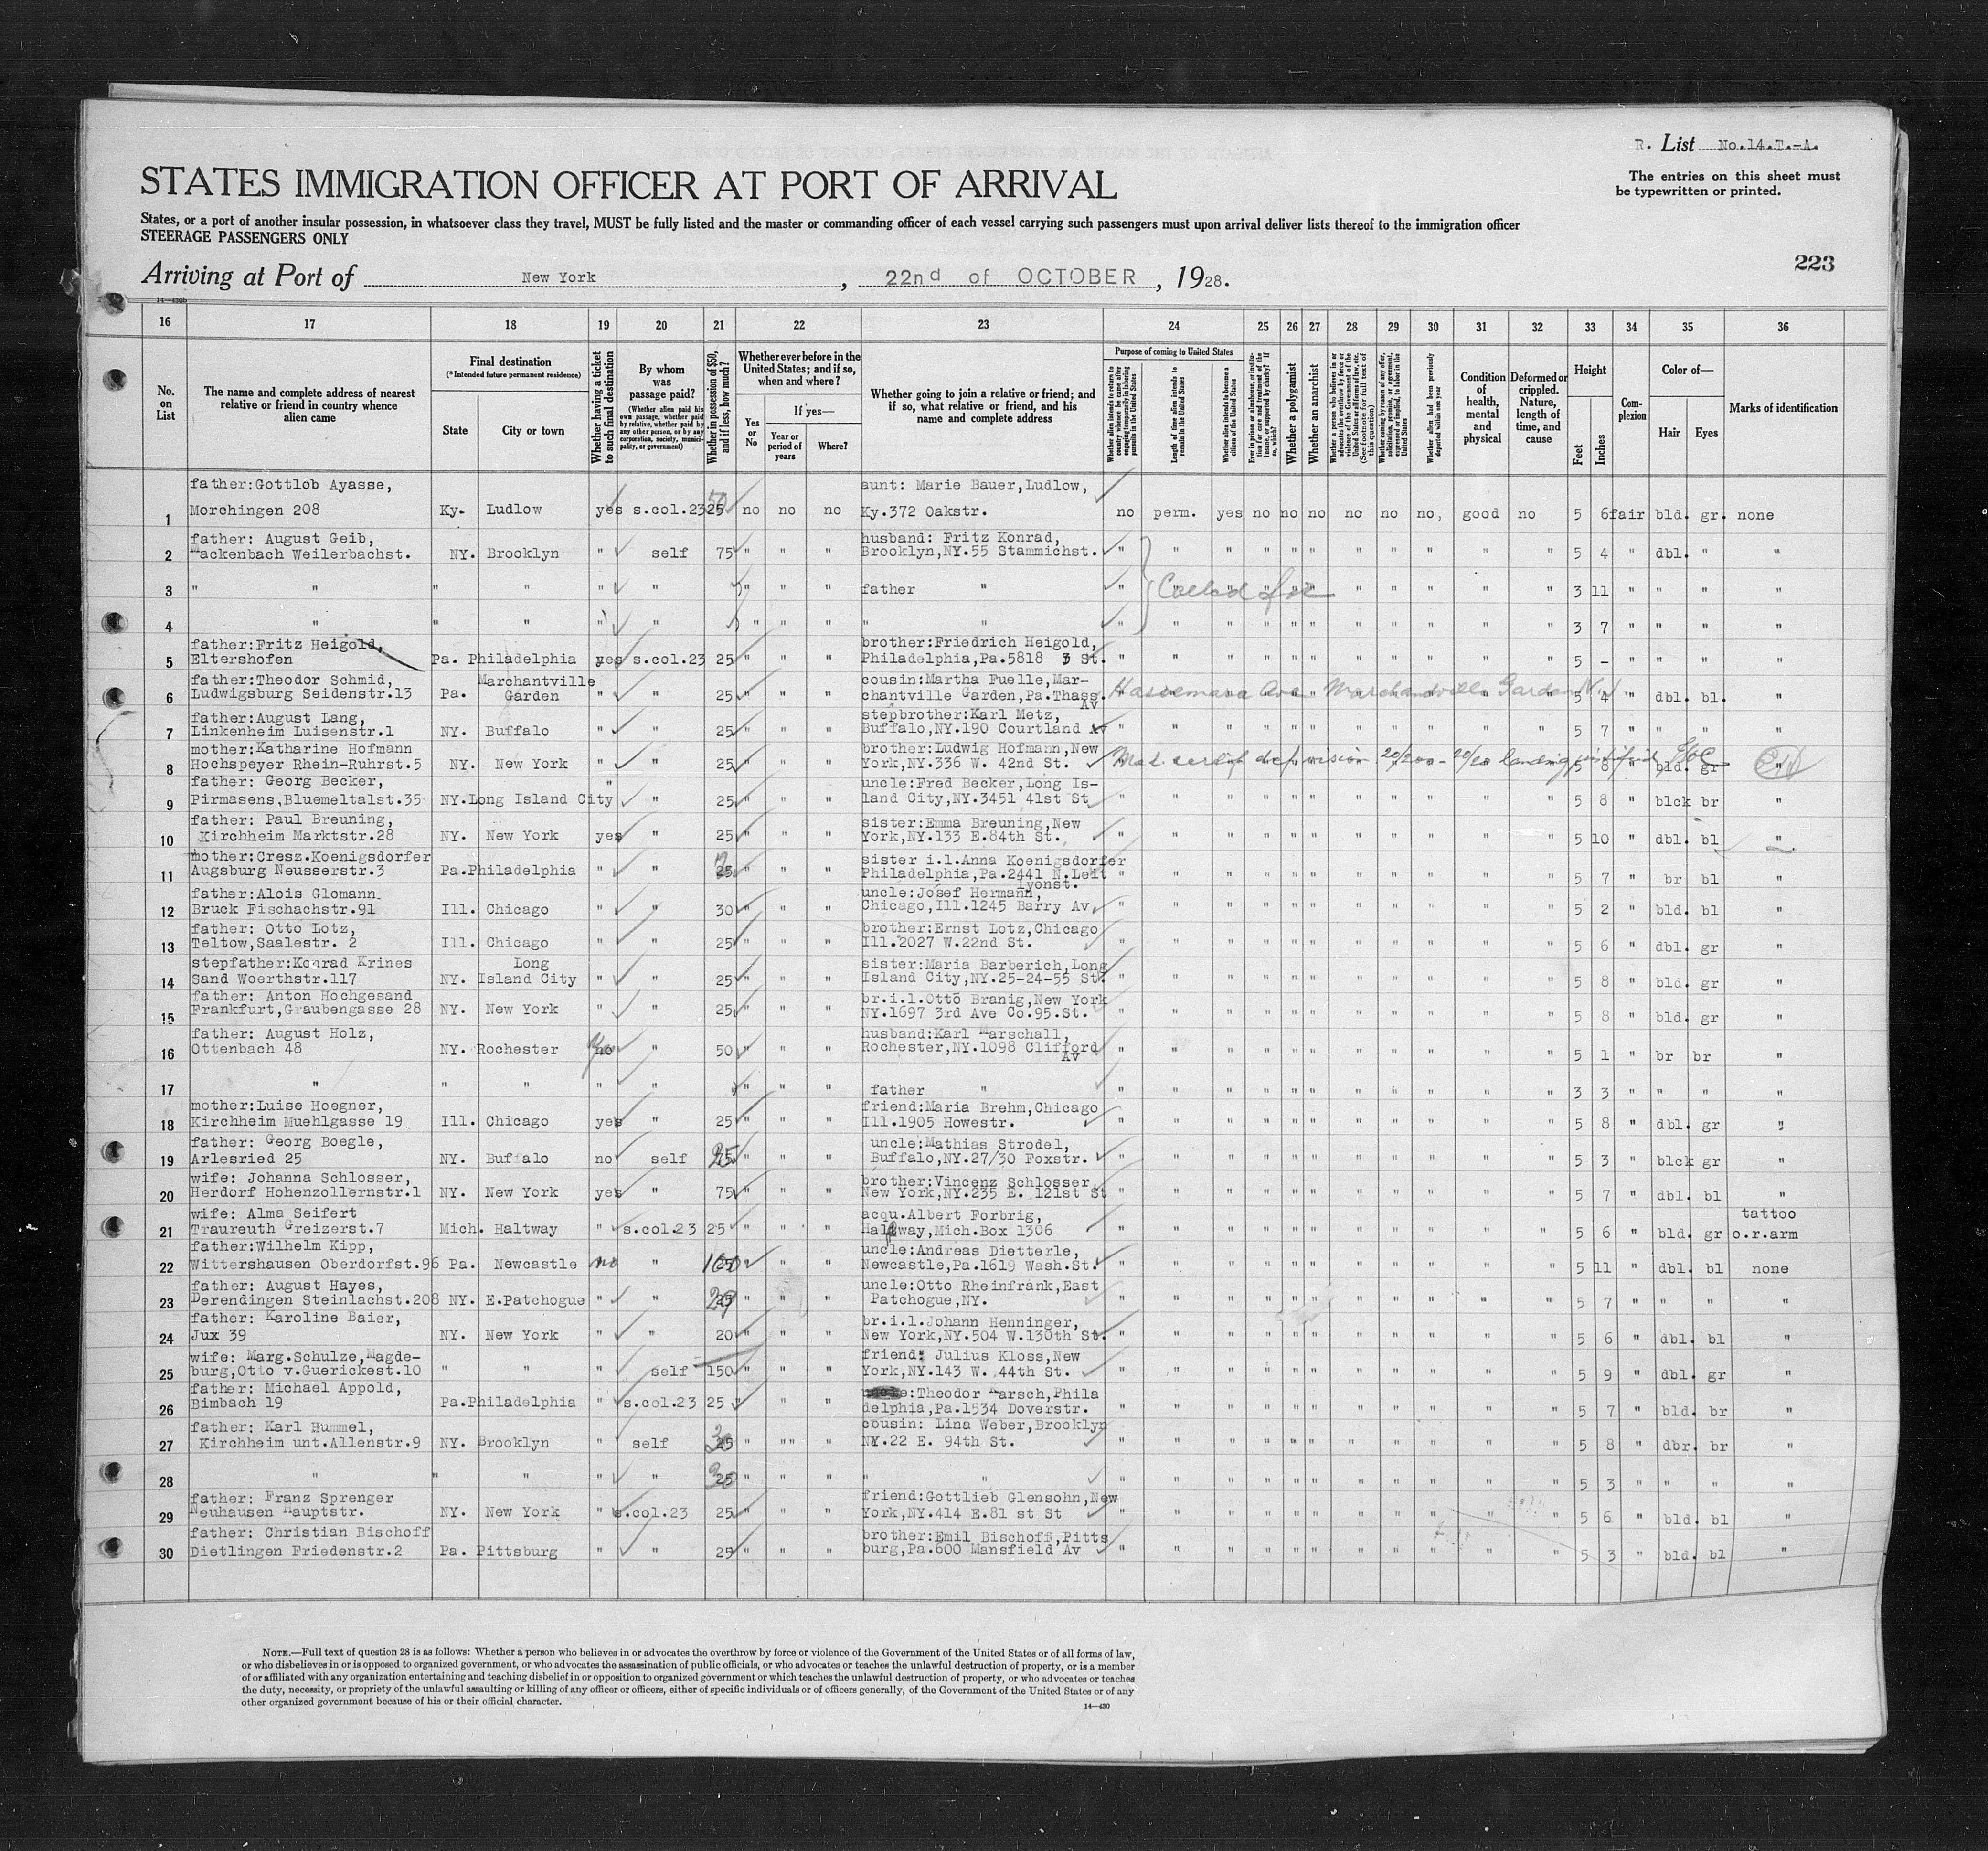 R. List No.14.T.-A.
The entries on this sheet must
be typewritten or printed.
STATES IMMIGRATION OFFICER AT PORT OF ARRIVAL
States, or a port of another insular possession, in whatsoever class they travel, MUST be fully listed and the master or commanding officer of each vessel carrying such passengers must upon arrival deliver lists thereof to the immigration officer
STEERAGE PASSENGERS ONLY
223
Arriving at Port of New York, 22nd of OCTOBER, 1928.
14—430b
16 17 18 19 20 21 22 23 24 25 26 27 28 29 30 31 32 33 34 35 36
No. on List
The name and complete address of nearest relative or friend in country whence alien came
Final destination
(*Intended future permanent residence)
State City or town
Whether having a ticket to such final destination
By whom was passage paid?
(Whether alien paid his own passage, whether paid by relative, whether paid by any other person, or by any corporation, society, municipality, or government)
Whether in possession of $50, and if less, how much?
Whether ever before in the United States; and if so, when and where?
Yes or No
If yes—
Year or period of years
Where?
Whether going to join a relative or friend; and if so, what relative or friend, and his name and complete address
Purpose of coming to United States
Whether alien intends to return to country whence he came after engaging temporarily in laboring pursuits in the United States
Length of time alien intends to remain in the United States
Whether alien intends to become a citizen of the United States
Ever in prison or almshouse, or institution for care and treatment of the insane, or supported by charity? If so, which?
Whether a polygamist
Whether an anarchist
Whether a person who believes in or advocates the overthrow by force or violence of the Government of the United States or all forms of law, etc. (See footnote for full text of this question)
Whether coming by reason of any offer, solicitation, promise, or agreement, expressed or implied, to labor in the United States
Whether alien had been previously deported within one year
Condition of health, mental and physical
Deformed or crippled. Nature, length of time, and cause
Height
Feet Inches
Complexion
Color of—
Hair Eyes
Marks of identification
father:Gottlob Ayasse, aunt: Marie Bauer,Ludlow,
1 Morchingen 208 Ky. Ludlow yes s.col.23 25 50 no no no Ky.372 Oakstr. no perm. yes no no no no no no, good no 5 6 fair bld. gr. none
father: August Geib, husband: Fritz Konrad,
2 Mackenbach Weilerbachst. NY. Brooklyn " self 75 " " " Brooklyn,NY.55 Stammichst. " " " " " " " " " " " 5 4 " dbl. " "
3 " " " " " " " " " father " " Called for " " " " " " " " 3 11 " " " "
4 " " " " " " " " " " " " " " " " " " " " " 3 7 " " " "
father:Fritz Heigold, brother:Friedrich Heigold,
5 Eltershofen Pa. Philadelphia yes s.col.23 25 " " " Philadelphia,Pa.5818 3 St. " " " " " " " " " " " 5 - " " " "
father:Theodor Schmid, Marchantville cousin:Martha Fuelle,Mar-
6 Ludwigsburg Seidenstr.13 Pa. Garden " " 25 " " " chantville Garden,Pa.Thass. Av 5 4 " dbl. bl. "
father:August Lang, stepbrother:Karl Metz,
7 Linkenheim Luisenstr.1 NY. Buffalo " " 25 " " " Buffalo,NY.190 Courtland Av " " " " " " " " " " " 5 7 " " " "
mother:Katharine Hofmann brother:Ludwig Hofmann,New
8 Hochspeyer Rhein-Ruhrst.5 NY. New York " " 25 " " " York,NY.336 W. 42nd St. Med. certif. def. vision 20/200 - 20/20 landing 5 8 " bld. gr "
father: Georg Becker, uncle:Fred Becker,Long Is-
9 Pirmasens,Bluemeltalst.35 NY.Long Island City " " 25 " " " land City,NY.3451 41st St " " " " " " " " " " " 5 8 " blck br "
father: Paul Breuning, sister:Emma Breuning,New
10 Kirchheim Marktstr.28 NY. New York yes " 25 " " " York,NY.133 E.84th St. " " " " " " " " " " " 5 10 " dbl. bl "
mother:Cresz.Koenigsdorfer sister i.l.Anna Koenigsdorfer
11 Augsburg Neusserstr.3 Pa.Philadelphia " " 25 " " " Philadelphia,Pa.2441 N.Leit lyonst. " " " " " " " " " " " 5 7 " br bl "
father:Alois Glomann uncle:Josef Hermann,
12 Bruck Fischachstr.91 Ill. Chicago " " 30 " " " Chicago,Ill.1245 Barry Av. " " " " " " " " " " " 5 2 " bld. bl "
father: Otto Lotz, brother:Ernst Lotz,Chicago
13 Teltow,Saalestr. 2 Ill. Chicago " " 25 " " " Ill.2027 W.22nd St. " " " " " " " " " " " 5 6 " dbl. gr "
stepfather:Konrad Krines Long sister:Maria Barberich,Long
14 Sand Woerthstr.117 NY. Island City " " 25 " " " Island City,NY.25-24-55 St. " " " " " " " " " " " 5 8 " bld. gr "
father: Anton Hochgesand br.i.l.Otto Branig,New York
15 Frankfurt,Graubengasse 28 NY. New York " " 25 " " " NY.1697 3rd Ave Co.95.St. " " " " " " " " " " " 5 8 " bld. gr "
father: August Holz, husband:Karl Marschall,
16 Ottenbach 48 NY. Rochester no " 50 " " " Rochester,NY.1098 Clifford Av " " " " " " " " " " " 5 1 " br br "
17 " " " " " " " " father " " " " " " " " " " " " " 3 3 " " " "
mother:Luise Hoegner, friend:Maria Brehm,Chicago
18 Kirchheim Muehlgasse 19 Ill. Chicago yes " 25 " " " Ill.1905 Howestr. " " " " " " " " " " " 5 8 " dbl. gr "
father: Georg Boegle, uncle:Mathias Strodel,
19 Arlesried 25 NY. Buffalo no self 25 " " " Buffalo,NY.27/30 Foxstr. " " " " " " " " " " " 5 3 " blck gr "
wife: Johanna Schlosser, brother:Vincenz Schlosser
20 Herdorf Hohenzollernstr.1 NY. New York yes " 75 " " " New York,NY.235 E. 121st St " " " " " " " " " " " 5 7 " dbl. bl "
wife: Alma Seifert acqu.Albert Forbrig, tattoo
21 Traureuth Greizerst.7 Mich. Haltway " s.col.23 25 " " " Halfway,Mich.Box 1306 " " " " " " " " " " " 5 6 " bld. gr o.r.arm
father:Wilhelm Kipp, uncle:Andreas Dietterle,
22 Wittershausen Oberdorfst.96 Pa. Newcastle no " 100 " " " Newcastle,Pa.1619 Wash.St. " " " " " " " " " " " 5 11 " dbl. bl none
father: August Hayes, uncle:Otto Rheinfrank,East
23 Derendingen Steinlachst.208 NY. E.Patchogue " " 29 " " " Patchogue,NY. " " " " " " " " " " " 5 7 " " " "
father: Karoline Baier, br.i.l.Johann Henninger,
24 Jux 39 NY. New York " " 20 " " " New York,NY.504 W.130th St. " " " " " " " " " " " 5 6 " dbl. bl "
wife: Marg.Schulze,Magde- friend: Julius Kloss,New
25 burg,Otto v.Guerickest.10 " " " self 150 " " " York,NY.143 W. 44th St. " " " " " " " " " " " 5 9 " dbl. gr "
father: Michael Appold, :Theodor Karsch,Phila
26 Bimbach 19 Pa.Philadelphia " s.col.23 25 " " " delphia,Pa.1534 Doverstr. " " " " " " " " " " " 5 7 " bld. br "
father: Karl Hummel, cousin: Lina Weber,Brooklyn
27 Kirchheim unt.Allenstr.9 NY. Brooklyn " self 25 30 " "" " NY.22 E. 94th St. " " " " " " " " " " " 5 8 " dbr. br "
28 " " " " " 25 30 " " " " " " " " " " " " " " " " " 5 3 " " " "
father: Franz Sprenger friend:Gottlieb Glensohn,New
29 Neuhausen Hauptstr. NY. New York " s.col.23 25 " " " York,NY.414 E.81 st St " " " " " " " " " " " 5 6 " bld. bl "
father: Christian Bischoff brother:Emil Bischoff,Pitts
30 Dietlingen Friedenstr.2 Pa. Pittsburg " " 25 " " " burg,Pa.600 Mansfield Av " " " " " " " " " " " 5 3 " bld. bl "
NOTE.—Full text of question 28 is as follows: Whether a person who believes in or advocates the overthrow by force or violence of the Government of the United States or of all forms of law,
or who disbelieves in or is opposed to organized government, or who advocates the assassination of public officials, or who advocates or teaches the unlawful destruction of property, or is a member
of or affiliated with any organization entertaining and teaching disbelief in or opposition to organized government or which teaches the unlawful destruction of property, or who advocates or teaches
the duty, necessity, or propriety of the unlawful assaulting or killing of any officer or officers, either of specific individuals or of officers generally, of the Government of the United States or of any
other organized government because of his or their official character.
14—430